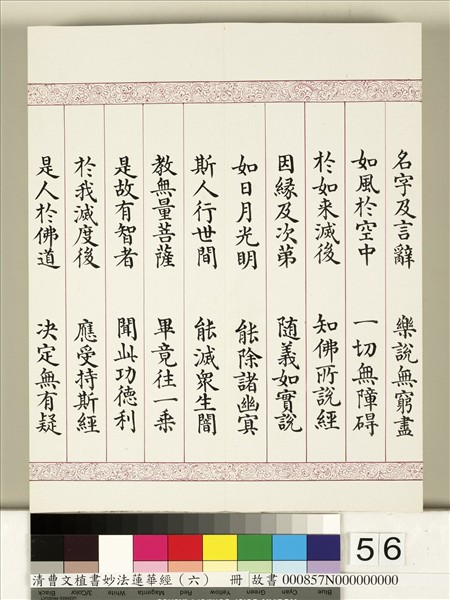 名字及言辭 樂說無窮盡
如風於空中 一切無障碍
於如来滅後 知佛所說經
因緣及次第 随義如實說
如日月光明 能除諸幽冥
斯人行世間 能滅衆生闇
教無量菩薩 畢竟住一乗
是故有智者 聞此功德利
於我滅度後 應受持斯經
是人於佛道 決定無有疑
56
Black 3/Color White Magenta Red Yellow Green Cyan Blue
清曹文植書妙法蓮華經(六) 冊 故書 000857N000000000